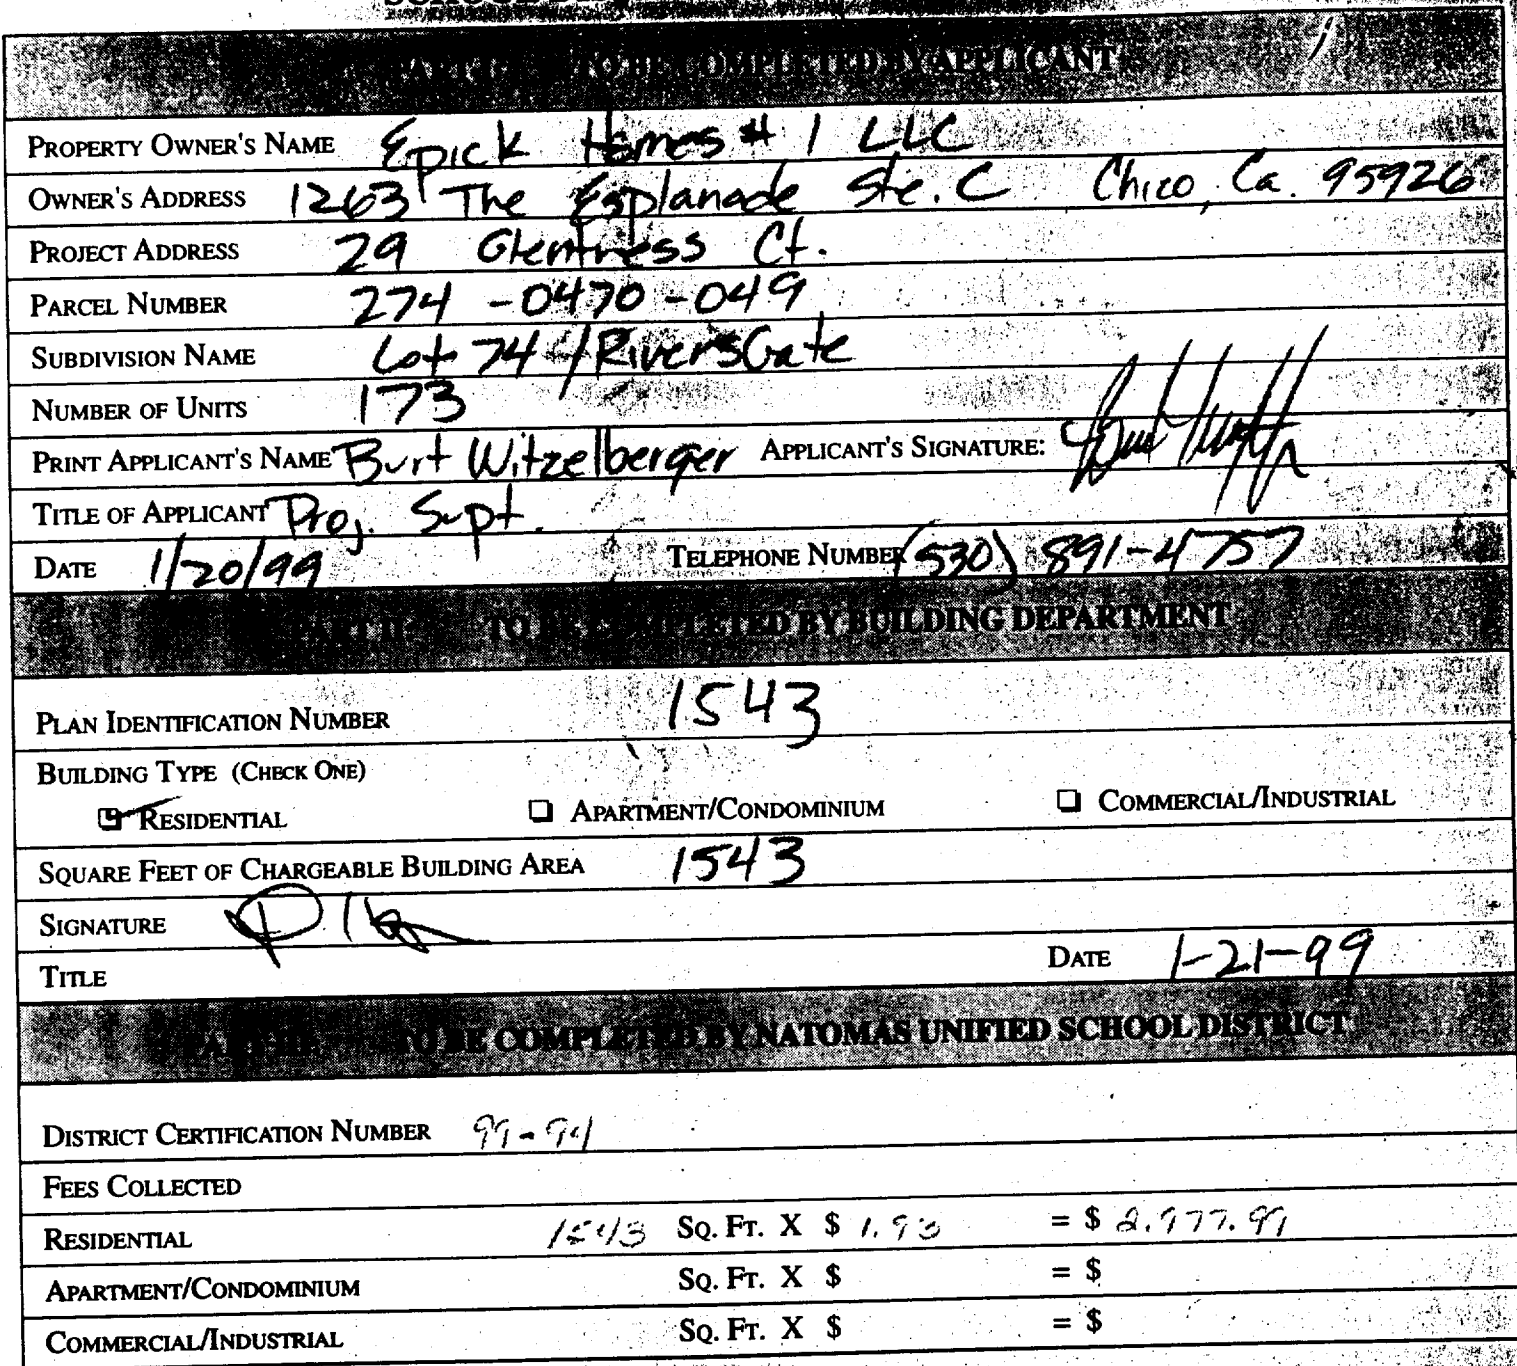 PART I TO BE COMPLETED BY APPLICANT
PROPERTY OWNER'S NAME Epick Homes # 1 LLC
OWNER'S ADDRESS 1263 The Esplanade Ste. C Chico, Ca. 95926
PROJECT ADDRESS 29 Glentress Ct.
PARCEL NUMBER 274-0470-049
SUBDIVISION NAME Lot 74 / RiversGate
NUMBER OF UNITS 173
PRINT APPLICANT'S NAME Burt Witzelberger APPLICANT'S SIGNATURE:
TITLE OF APPLICANT Proj. Supt.
DATE 1/20/99 TELEPHONE NUMBER (530) 891-4757
PART II TO BE COMPLETED BY BUILDING DEPARTMENT
PLAN IDENTIFICATION NUMBER 1543
BUILDING TYPE (CHECK ONE)
RESIDENTIAL APARTMENT/CONDOMINIUM COMMERCIAL/INDUSTRIAL
SQUARE FEET OF CHARGEABLE BUILDING AREA 1543
SIGNATURE
TITLE DATE 1-21-99
PART III TO BE COMPLETED BY NATOMAS UNIFIED SCHOOL DISTRICT
DISTRICT CERTIFICATION NUMBER 99-94
FEES COLLECTED
RESIDENTIAL 1543 SQ. FT. X $ 1.93 = $ 2,977.99
APARTMENT/CONDOMINIUM SQ. FT. X $ = $
COMMERCIAL/INDUSTRIAL SQ. FT. X $ = $